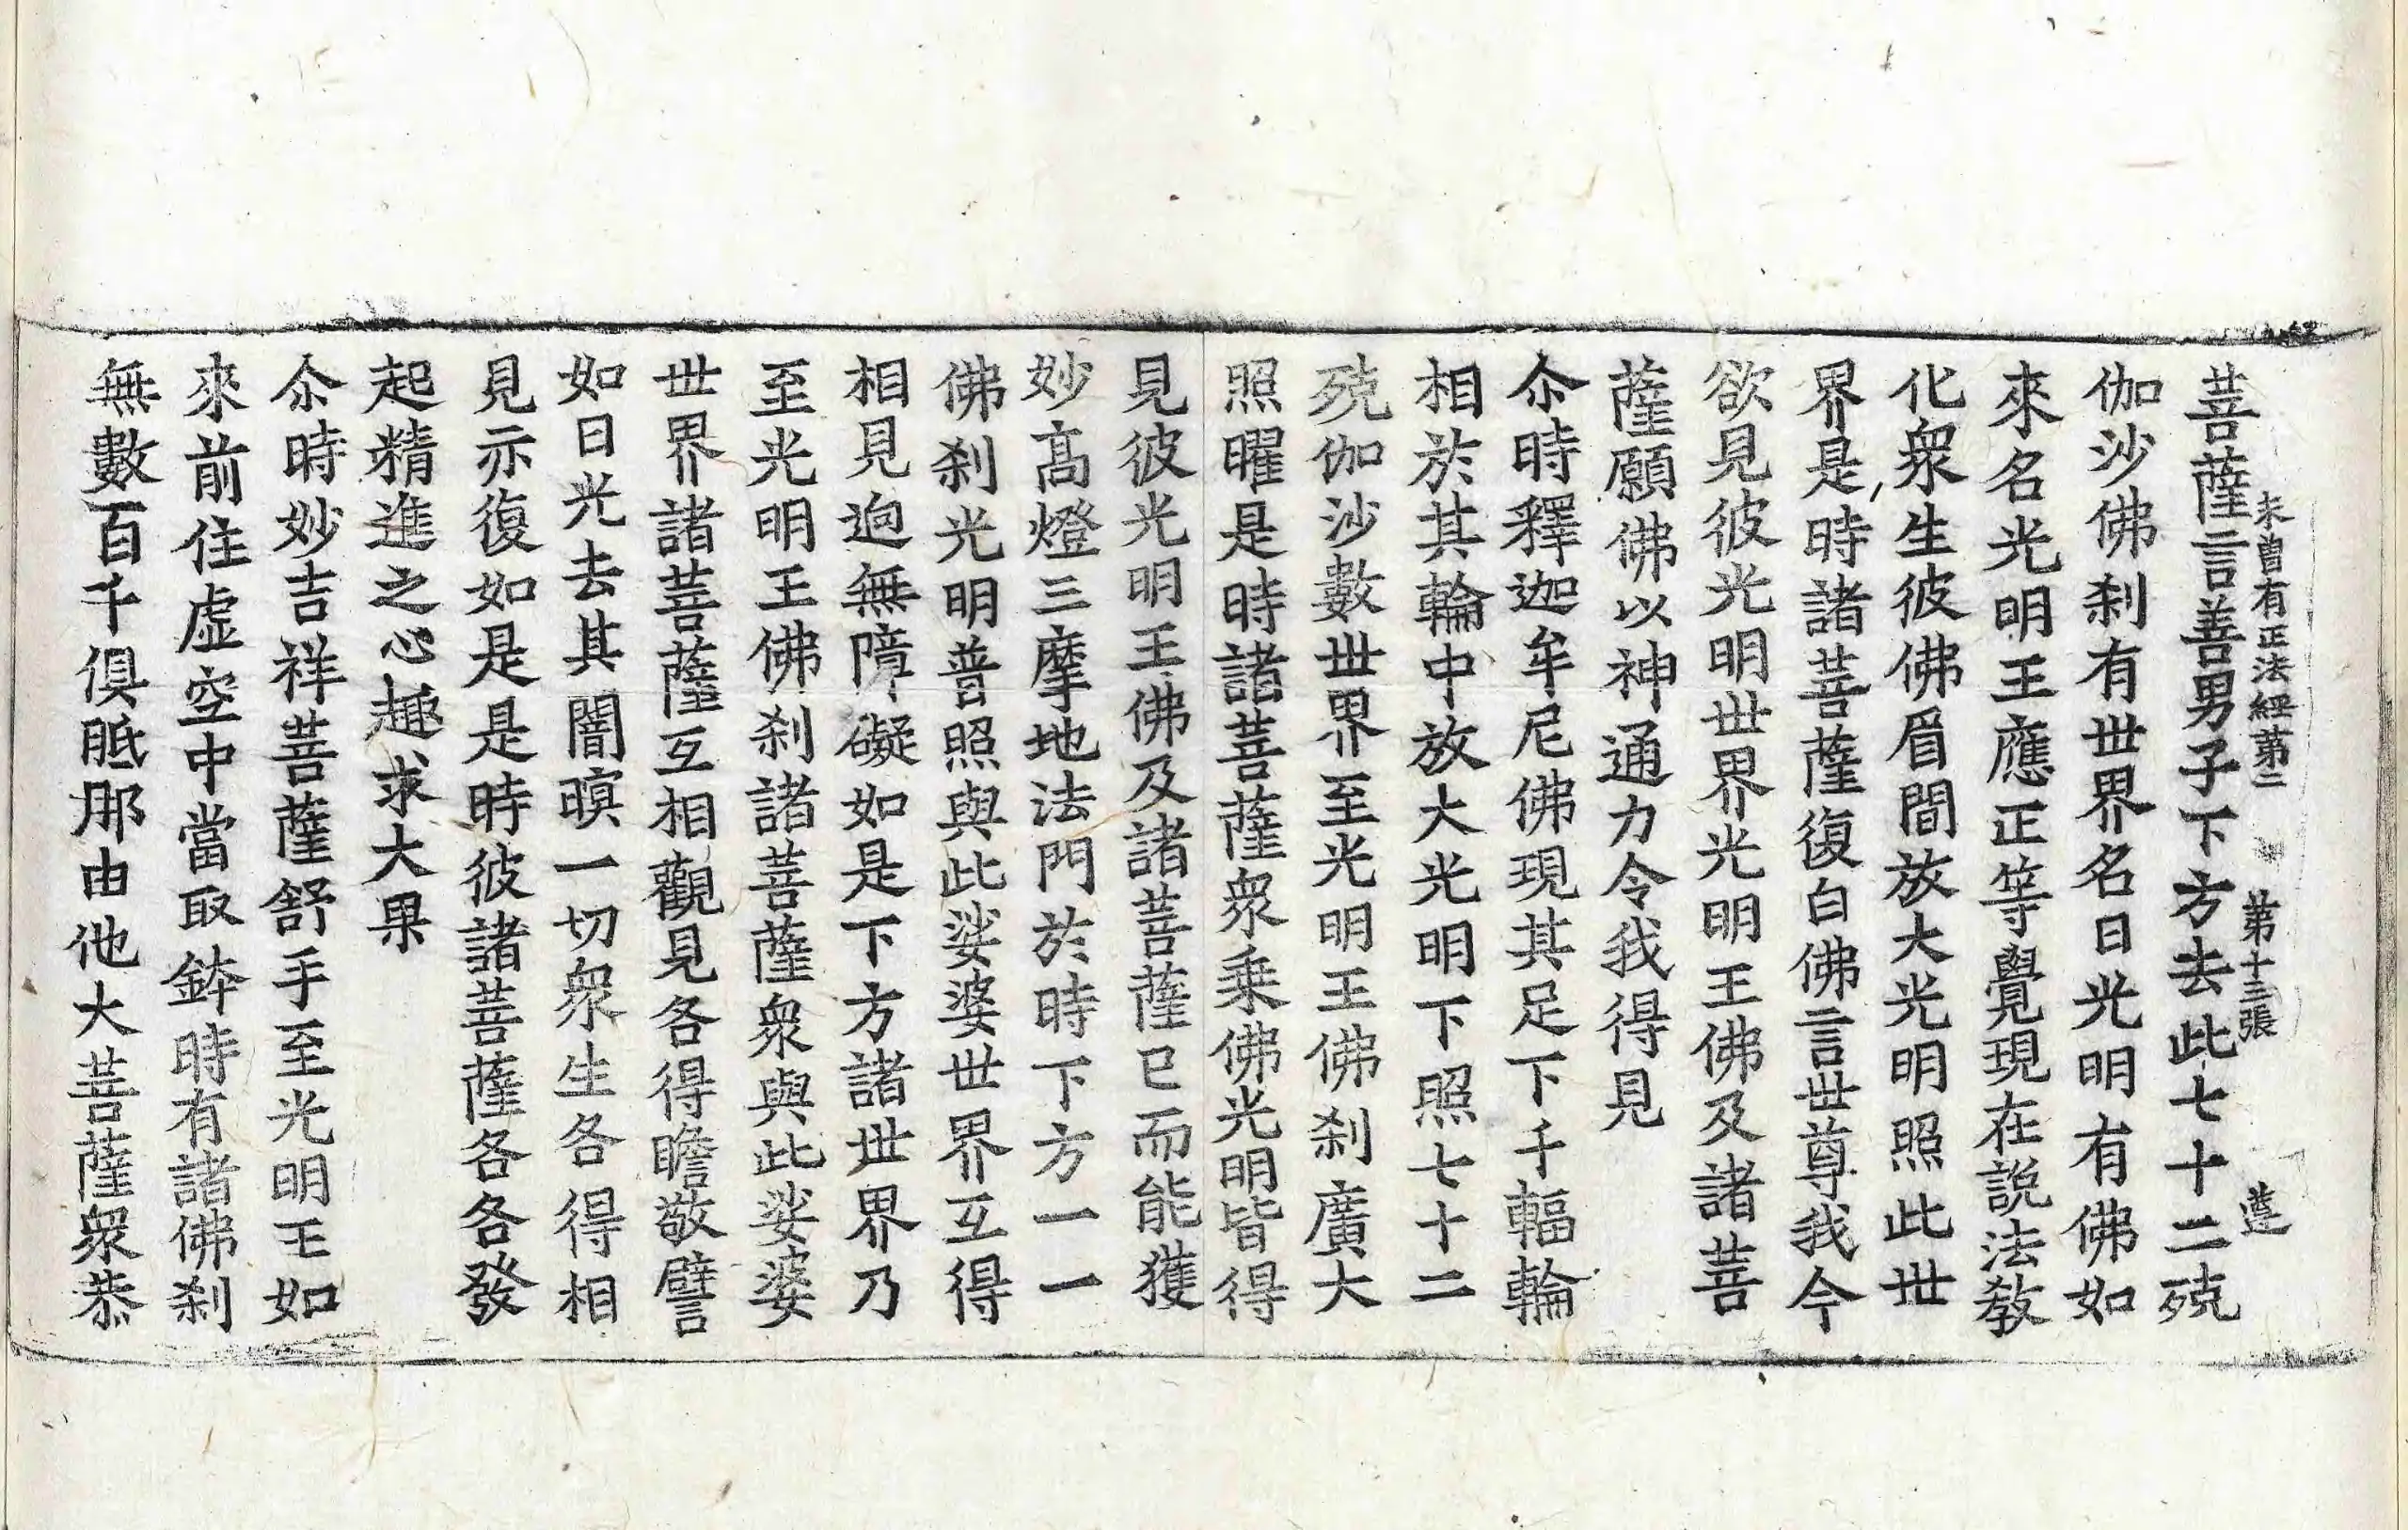 未曾有正法經第二 第十三張 薳
菩薩言善男子下方去此七十二殑
伽沙佛刹有世界名日光明有佛如
來名光明王應正等覺現在説法敎
化衆生彼佛眉間放大光明照此世
界是時諸菩薩復白佛言世尊我今
欲見彼光明世界光明王佛及諸菩
薩願佛以神通力令我得見
尒時釋迦牟尼佛現其足下千輻輪
相於其輪中放大光明下照七十二
殑伽沙數世界至光明王佛刹廣大
照曜是時諸菩薩衆乗佛光明皆得
見彼光明王佛及諸菩薩已而能獲
妙髙燈三摩地法門於時下方一一
佛刹光明普照與此娑婆世界互得
相見逈無障礙如是下方諸世界乃
至光明王佛刹諸菩薩衆與此娑婆
世界諸菩薩互相觀見各得瞻敬譬
如日光去其闇暝一切衆生各得相
見亦復如是是時彼諸菩薩各各發
起精進之心趣求大果
尒時妙吉祥菩薩舒手至光明王如
來前住虛空中當取鉢時有諸佛刹
無數百千俱胝那由他大菩薩衆恭